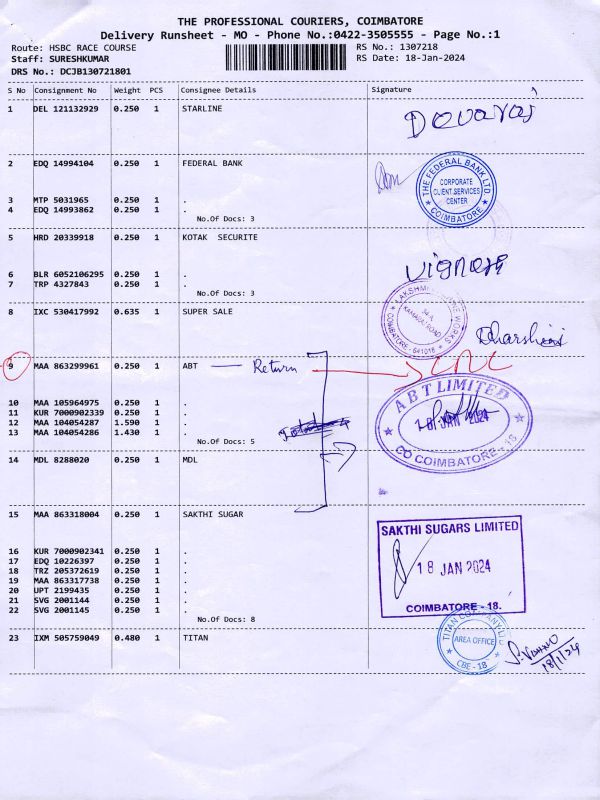 THE PROFESSIONAL COURIERS, COIMBATORE
Delivery Runsheet - MO - Phone No.:0422-3505555 - Page No.:1
Route: HSBC RACE COURSE RS No.: 1307218
Staff: SURESHKUMAR RS Date: 18-Jan-2024
DRS No.: DCJB130721801
S No Consignment No Weight PCS Consignee Details Signature
1 DEL 121132929 0.250 1 STARLINE
Devaraj
2 EDQ 14994104 0.250 1 FEDERAL BANK
THE FEDERAL BANK LTD. COIMBATORE
CORPORATE
CLIENT SERVICES
CENTER
3 MTP 5031965 0.250 1 .
4 EDQ 14993862 0.250 1 .
No.Of Docs: 3
5 HRD 20339918 0.250 1 KOTAK SECURITE
6 BLR 6052106295 0.250 1 .
7 TRP 4327843 0.250 1 .
No.Of Docs: 3
8 IXC 530417992 0.635 1 SUPER SALE
KAMARAJ ROAD
COIMBATORE - 641018
Dharshini
9 MAA 863299961 0.250 1 ABT — Return
10 MAA 105964975 0.250 1 .
11 KUR 7000902339 0.250 1 .
12 MAA 104054287 1.590 1 .
13 MAA 104054286 1.430 1 .
No.Of Docs: 5
ABT LIMITED
18 JAN 2024
CO COIMBATORE - 18
14 MDL 8288020 0.250 1 MDL
15 MAA 863318004 0.250 1 SAKTHI SUGAR
16 KUR 7000902341 0.250 1 .
17 EDQ 10226397 0.250 1 .
18 TRZ 205372619 0.250 1 .
19 MAA 863317738 0.250 1 .
20 UPT 2199435 0.250 1 .
21 SVG 2001144 0.250 1 .
22 SVG 2001145 0.250 1 .
No.Of Docs: 8
SAKTHI SUGARS LIMITED
18 JAN 2024
COIMBATORE - 18.
23 IXM 505759049 0.480 1 TITAN
TITAN COMPANY LTD
AREA OFFICE
CBE - 18
18/1/24